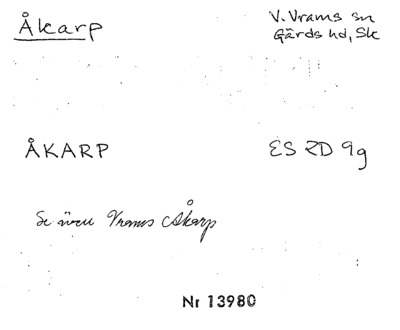 Åkarp
V. Vrams sn
Gärds hd, Sk
ÅKARP
ES 2D 9g
Se även Vrams Åkarp
Nr 13980